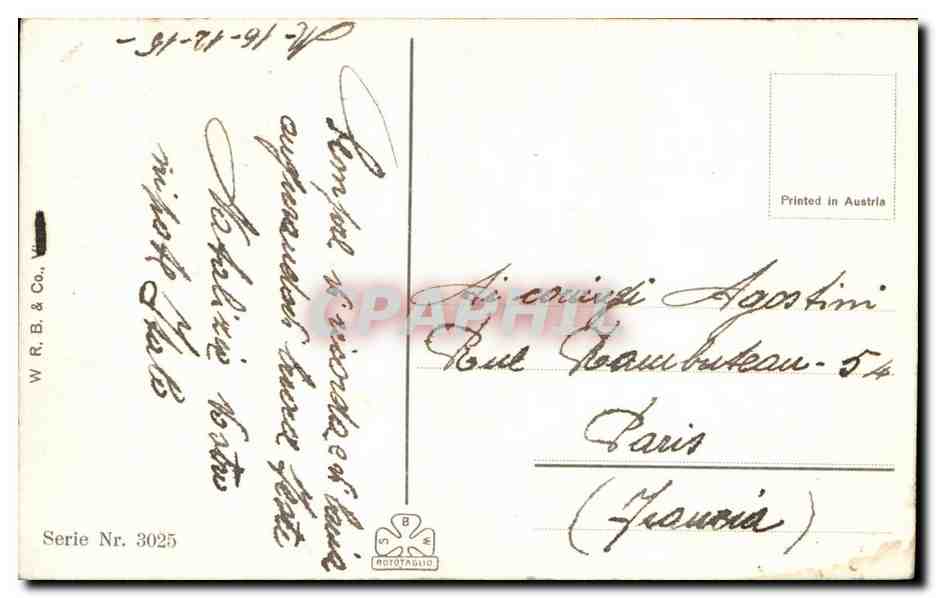 M-16-12-15-
Sempre vi ricorda e vi bacia
augurandovi buone feste
Natalizie Vostro
nipote Italo
Ai coniugi Agostini
Rue Rambuteau - 54
Paris
(Francia)
Printed in Austria
W R. B. & Co.,
Serie Nr. 3025
S B M
ROTOTAGLIO
CPAPHIL